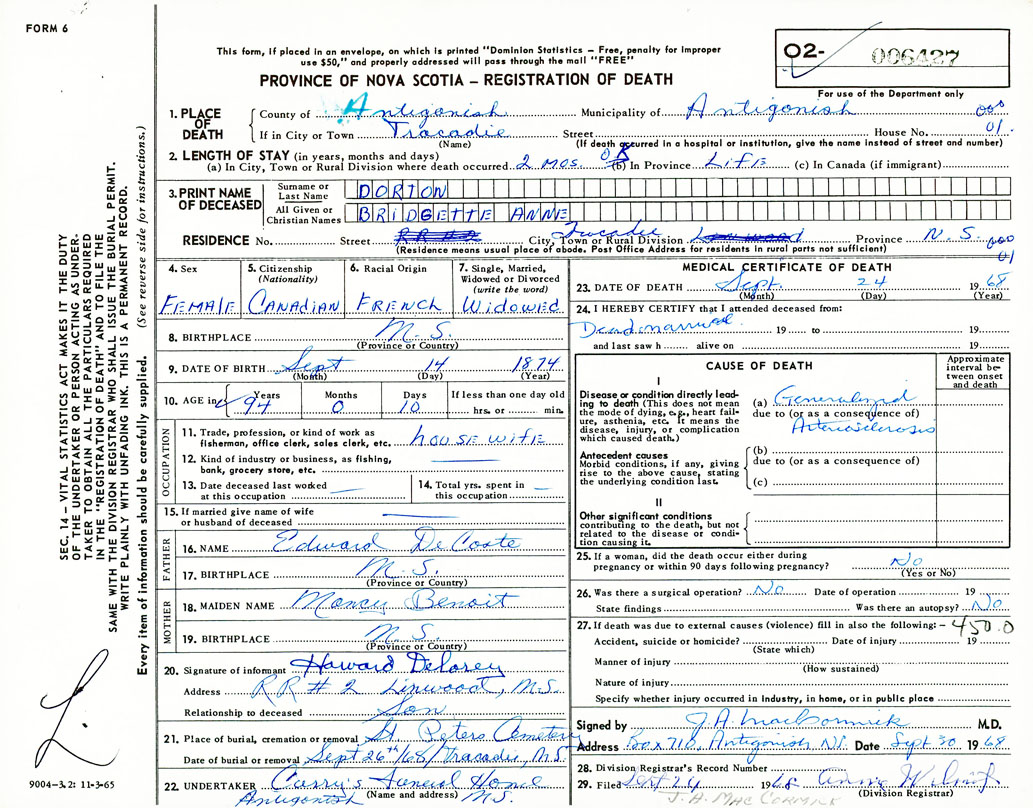 FORM 6
This form, if placed in an envelope, on which is printed "Dominion Statistics – Free, penalty for improper
use $50," and properly addressed will pass through the mail "FREE"
PROVINCE OF NOVA SCOTIA – REGISTRATION OF DEATH
O2- 006427
For use of the Department only
1. PLACE OF DEATH
County of Antigonish Municipality of Antigonish 000
If in City or Town Tracadie Street House No. 01.
(Name) (If death occurred in a hospital or institution, give the name instead of street and number)
2. LENGTH OF STAY (in years, months and days)
(a) In City, Town or Rural Division where death occurred 2 mos. OR (b) In Province LIFE (c) In Canada (if immigrant)
3. PRINT NAME OF DECEASED
Surname or Last Name DORTON
All Given or Christian Names BRIDGETTE ANNE
RESIDENCE No. Street City, Town or Rural Division Tracadie Province N.S. 000
(Residence means usual place of abode. Post Office Address for residents in rural parts not sufficient) 01
4. Sex FEMALE
5. Citizenship (Nationality) CANADIAN
6. Racial Origin FRENCH
7. Single, Married, Widowed or Divorced (write the word) WIDOWED
8. BIRTHPLACE N.S.
(Province or Country)
9. DATE OF BIRTH Sept 14 1874
(Month) (Day) (Year)
10. AGE in Years 94 Months 0 Days 10 If less than one day old
hrs. or min.
OCCUPATION
11. Trade, profession, or kind of work as
fisherman, office clerk, sales clerk, etc. housewife
12. Kind of industry or business, as fishing,
bank, grocery store, etc.
13. Date deceased last worked
at this occupation
14. Total yrs. spent in
this occupation
15. If married give name of wife
or husband of deceased
FATHER
16. NAME Edward DeCoste
17. BIRTHPLACE N.S.
(Province or Country)
MOTHER
18. MAIDEN NAME Nancy Benoit
19. BIRTHPLACE N.S.
(Province or Country)
20. Signature of informant Howard Delorey
Address RR # 2 Linwood, N.S.
Relationship to deceased Son
21. Place of burial, cremation or removal St Peters Cemetery
Date of burial or removal Sept 26th/68/Tracadie, N.S.
22. UNDERTAKER Curry's Funeral Home
(Name and address)
Antigonish N.S.
MEDICAL CERTIFICATE OF DEATH
23. DATE OF DEATH Sept. 24 1968
(Month) (Day) (Year)
24. I HEREBY CERTIFY that I attended deceased from:
Dead on arrival 19 to 19
and last saw h alive on 19
CAUSE OF DEATH
Approximate interval between onset and death
I
Disease or condition directly leading to death (This does not mean
the mode of dying, e.g., heart failure, asthenia, etc. It means the
disease, injury, or complication
which caused death.)
(a) Generalized
due to (or as a consequence of)
Arteriosclerosis
Antecedent causes
Morbid conditions, if any, giving
rise to the above cause, stating
the underlying condition last.
(b)
due to (or as a consequence of)
(c)
II
Other significant conditions
contributing to the death, but not
related to the disease or condition causing it.
25. If a woman, did the death occur either during
pregnancy or within 90 days following pregnancy? No
(Yes or No)
26. Was there a surgical operation? No Date of operation 19
State findings Was there an autopsy? No
27. If death was due to external causes (violence) fill in also the following: – 450.0
Accident, suicide or homicide? Date of injury 19
(State which)
Manner of injury
(How sustained)
Nature of injury
Specify whether injury occurred in industry, in home, or in public place
Signed by J.A. MacCormick M.D.
Address Box 710, Antigonish N.S. Date Sept 30 1968
28. Division Registrar's Record Number
29. Filed Sept 26 1968
(Division Registrar)
J. A. MAC CORMICK
SEC. 14 – VITAL STATISTICS ACT MAKES IT THE DUTY
OF THE UNDERTAKER OR PERSON ACTING AS UNDER-
TAKER TO OBTAIN ALL THE PARTICULARS REQUIRED
IN THE "REGISTRATION OF DEATH" AND TO FILE THE
SAME WITH THE DIVISION REGISTRAR WHO SHALL ISSUE THE BURIAL PERMIT.
WRITE PLAINLY WITH UNFADING INK. THIS IS A PERMANENT RECORD.
Every item of information should be carefully supplied. (See reverse side for instructions.)
9004–3.2: 11-3-65